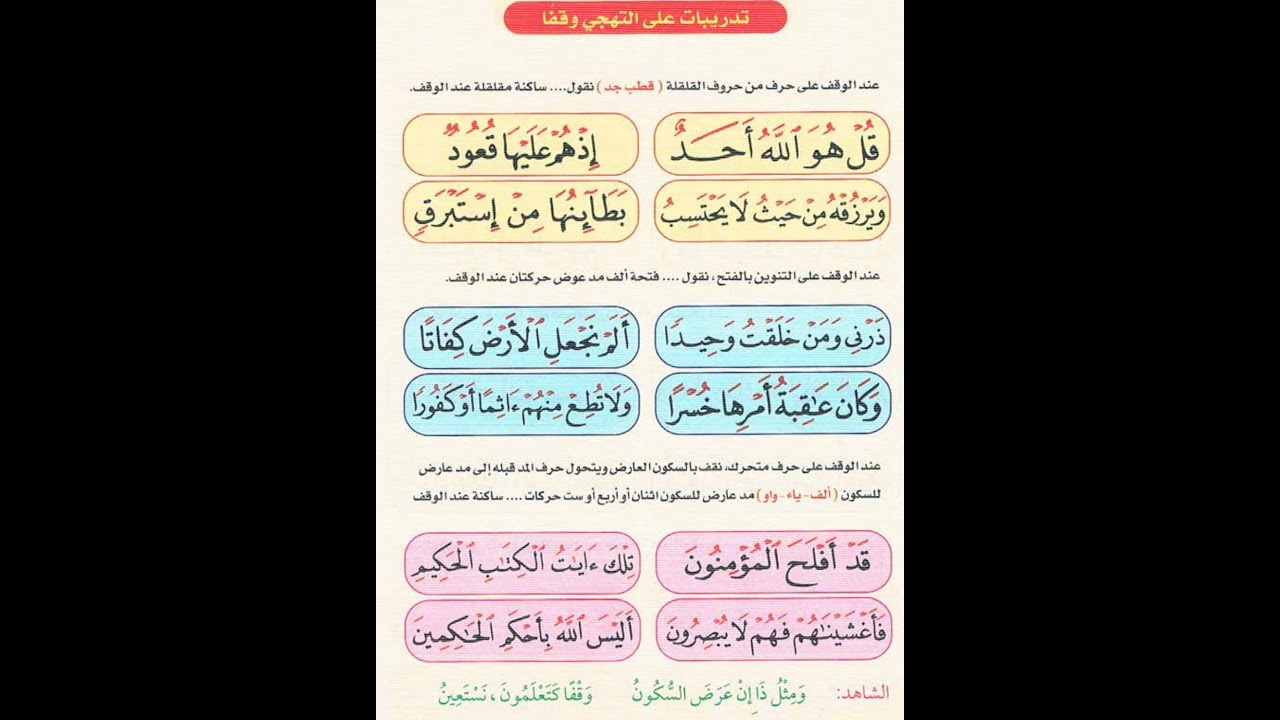 تدريبات على التهجي وقفًا
عند الوقف على حرف من حروف القلقلة ( قطب جد ) نقول.... ساكنة مقلقلة عند الوقف.
قُلْ هُوَ ٱللَّهُ أَحَدٌ
إِذْ هُمْ عَلَيْهَا قُعُودٌ
وَيَرْزُقْهُ مِنْ حَيْثُ لَا يَحْتَسِبُ
بَطَآئِنُهَا مِنْ إِسْتَبْرَقٍ
عند الوقف على التنوين بالفتح، نقول .... فتحة ألف مد عوض حركتان عند الوقف.
ذَرْنِي وَمَنْ خَلَقْتُ وَحِيدًا
أَلَمْ نَجْعَلِ ٱلْأَرْضَ كِفَاتًا
وَكَانَ عَـٰقِبَةُ أَمْرِهَا خُسْرًا
وَلَا تُطِعْ مِنْهُمْ ءَاثِمًا أَوْ كَفُورًا
عند الوقف على حرف متحرك، نقف بالسكون العارض ويتحول حرف المد قبله إلى مد عارض
للسكون ( ألف - ياء - واو ) مد عارض للسكون اثنان أو أربع أو ست حركات .... ساكنة عند الوقف
قَدْ أَفْلَحَ ٱلْمُؤْمِنُونَ
تِلْكَ ءَايَـٰتُ ٱلْكِتَـٰبِ ٱلْحَكِيمِ
فَأَغْشَيْنَـٰهُمْ فَهُمْ لَا يُبْصِرُونَ
أَلَيْسَ ٱللَّهُ بِأَحْكَمِ ٱلْحَـٰكِمِينَ
الشاهد: وَمِثْلُ ذَا إِنْ عَرَضَ السُّكُونُ وَقْفًا كَتَعْلَمُونَ، نَسْتَعِينُ